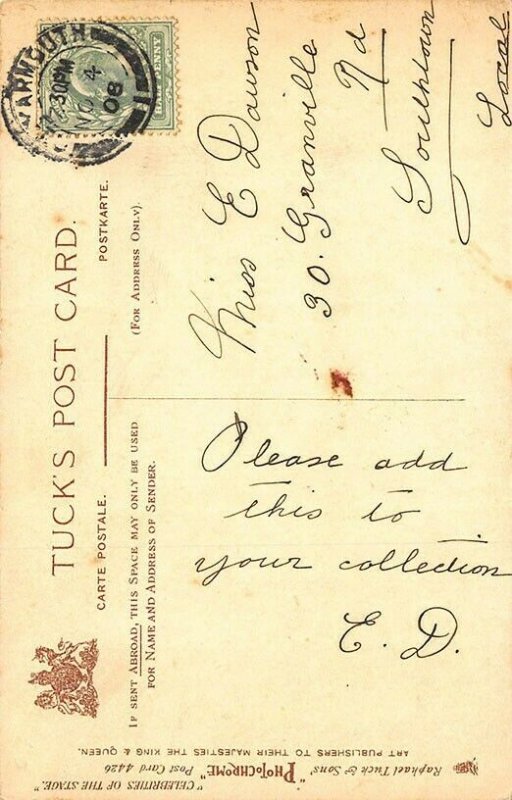 TUCK'S POST CARD.
CARTE POSTALE. POSTKARTE.
IF SENT ABROAD, THIS SPACE MAY ONLY BE USED
FOR NAME AND ADDRESS OF SENDER.
(FOR ADDRESS ONLY).
YARMOUTH
30PM
4
08
HALFPENNY
Please add
this to
your collection
E. D.
Miss E Dawson
30. Granville
Rd
Southtown
Local
"CELEBRITIES OF THE STAGE."
Raphael Tuck & Sons' "PHOTOCHROME" Post Card 4426
ART PUBLISHERS TO THEIR MAJESTIES THE KING & QUEEN.